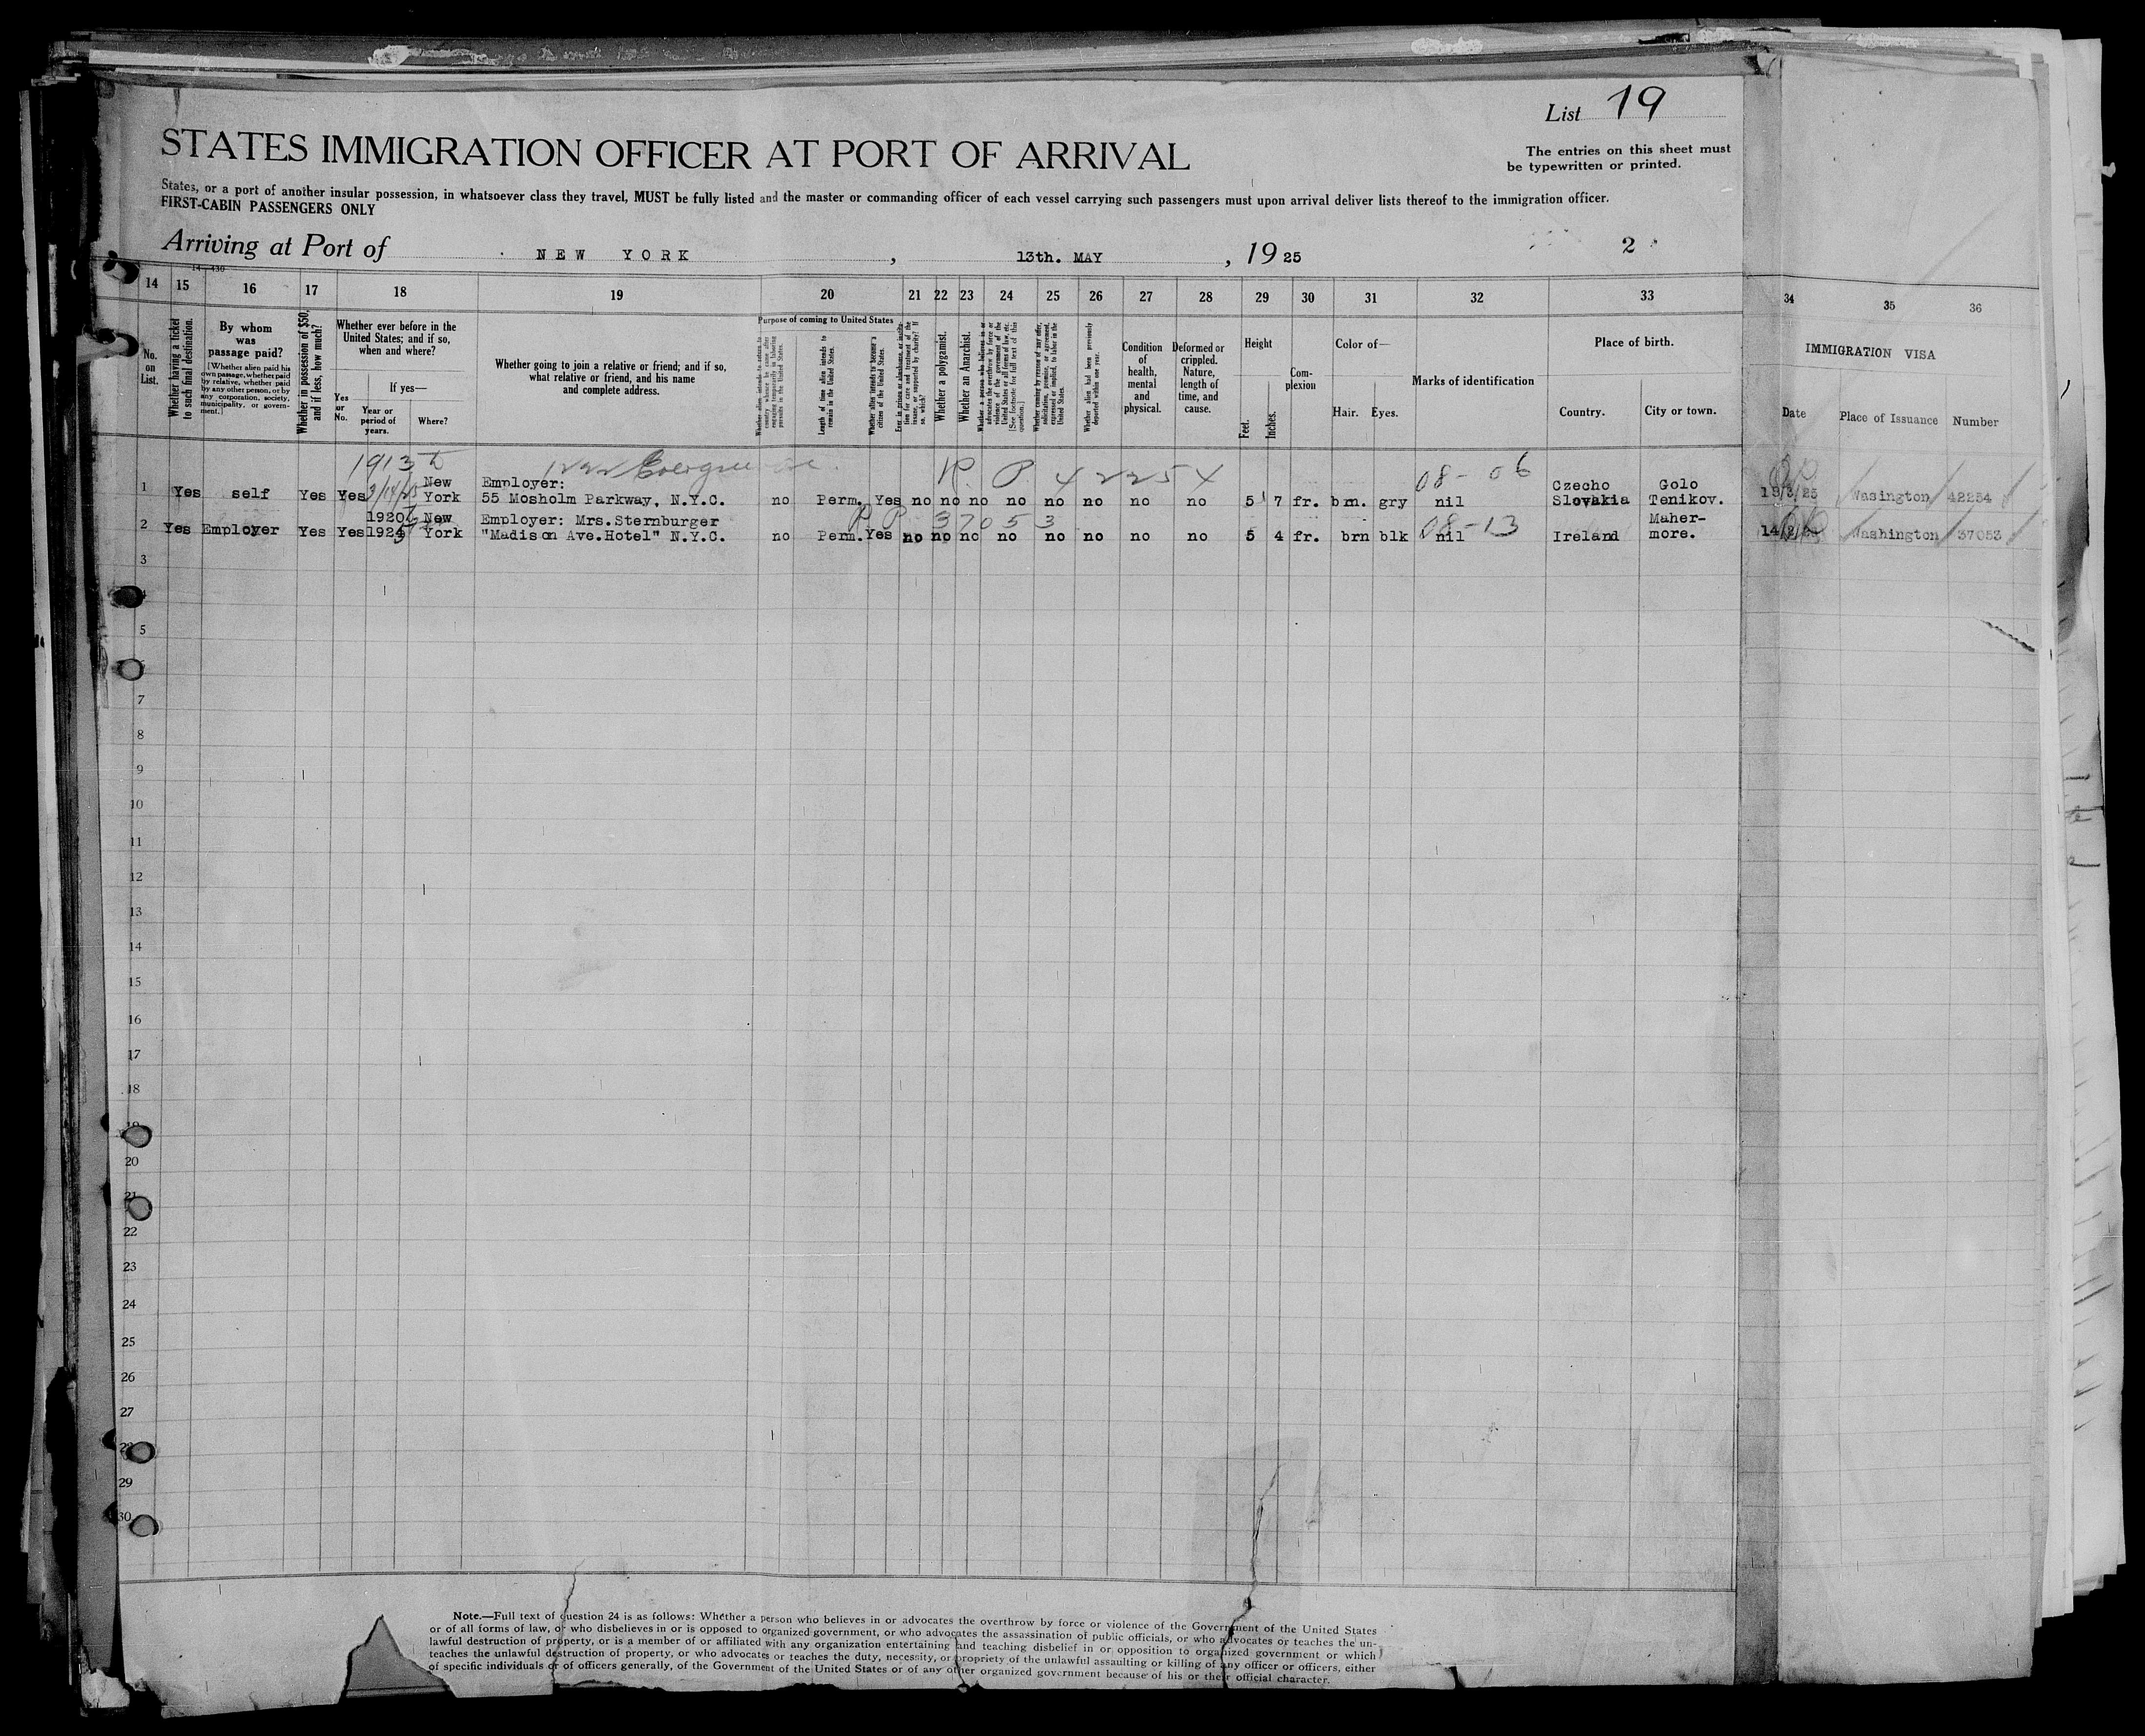 List 19
STATES IMMIGRATION OFFICER AT PORT OF ARRIVAL
The entries on this sheet must
be typewritten or printed.
States, or a port of another insular possession, in whatsoever class they travel, MUST be fully listed and the master or commanding officer of each vessel carrying such passengers must upon arrival deliver lists thereof to the immigration officer.
FIRST-CABIN PASSENGERS ONLY
Arriving at Port of NEW YORK , 13th. MAY , 19 25
2
14 15 16 17 18 19 20 21 22 23 24 25 26 27 28 29 30 31 32 33 34 35 36
No. on List.
Whether having a ticket to such final destination.
By whom was passage paid?
[Whether alien paid his own passage, whether paid by relative, whether paid by any other person, or by any corporation, society, municipality, or government.]
Whether in possession of $50, and if less, how much?
Whether ever before in the United States; and if so, when and where?
Yes or No.
If yes—
Year or period of years.
Where?
Whether going to join a relative or friend; and if so, what relative or friend, and his name and complete address.
Purpose of coming to United States
Length of time alien intends to remain in the United States.
Whether alien intends to become a citizen of the United States.
Whether a polygamist.
Whether an Anarchist.
Whether alien had been previously deported within one year.
Condition of health, mental and physical.
Deformed or crippled. Nature, length of time, and cause.
Height
Feet. Inches.
Complexion
Color of—
Hair. Eyes.
Marks of identification
Place of birth.
Country. City or town.
IMMIGRATION VISA
Date Place of Issuance Number
1913
R. P. 42254
08-06
1 Yes self Yes Yes 3/14/25 New York Employer: 55 Mosholm Parkway, N.Y.C. no Perm. Yes no no no no no no no no 5 7 fr. brn. gry nil Czecho Slovakia Golo Tenikov. Wasington 42254
R P 37053
08-13
2 Yes Employer Yes Yes 1920 New York Employer: Mrs.Sternburger "Madison Ave.Hotel" N.Y.C. no Perm. Yes no no no no no no no no 5 4 fr. brn blk nil Ireland Maher-more. Washington 37053
3
5
7
8
9
10
11
12
13
14
15
16
17
18
19
20
21
22
23
24
25
26
27
28
29
30
Note.—Full text of question 24 is as follows: Whether a person who believes in or advocates the overthrow by force or violence of the Government of the United States
or of all forms of law, or who disbelieves in or is opposed to organized government, or who advocates the assassination of public officials, or who advocates or teaches the un-
lawful destruction of property, or is a member of or affiliated with any organization entertaining and teaching disbelief in or opposition to organized government or which
teaches the unlawful destruction of property, or who advocates or teaches the duty, necessity, or propriety of the unlawful assaulting or killing of any officer or officers, either
of specific individuals or of officers generally, of the Government of the United States or of any other organized government because of his or their official character.